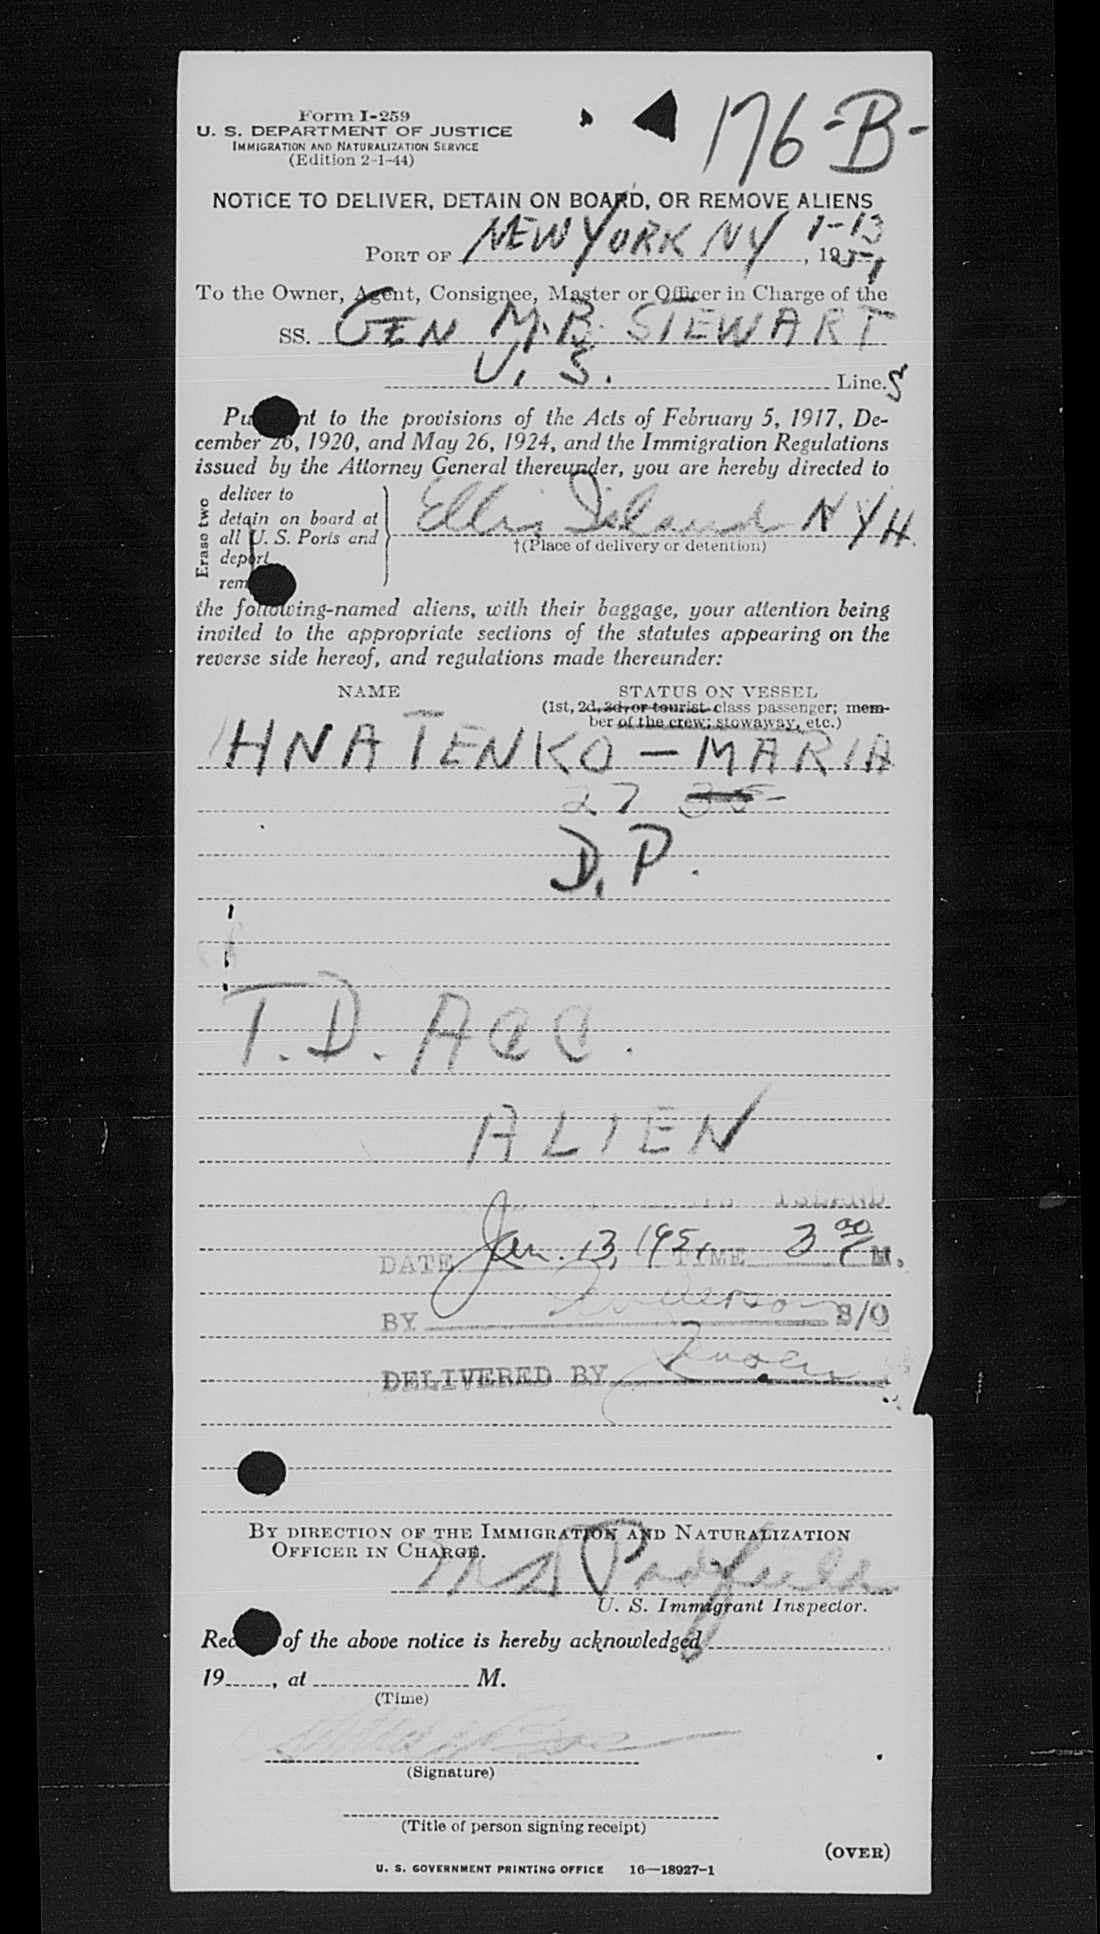 176-B-
Form I-259
U. S. DEPARTMENT OF JUSTICE
IMMIGRATION AND NATURALIZATION SERVICE
(Edition 2-1-44)
NOTICE TO DELIVER, DETAIN ON BOARD, OR REMOVE ALIENS
1-13
PORT OF NEW YORK NY, 1951
To the Owner, Agent, Consignee, Master or Officer in Charge of the
SS. GEN M.B. STEWART
U. S. Line.S
Pu nt to the provisions of the Acts of February 5, 1917, De-
cember 26, 1920, and May 26, 1924, and the Immigration Regulations
issued by the Attorney General thereunder, you are hereby directed to
Erase two
deliver to
detain on board at
all U. S. Ports and
deport
rem
Ellis Island NYH.
†(Place of delivery or detention)
the following-named aliens, with their baggage, your attention being
invited to the appropriate sections of the statutes appearing on the
reverse side hereof, and regulations made thereunder:
NAME STATUS ON VESSEL
(1st, 2d, 3d, or tourist class passenger; mem-
ber of the crew; stowaway, etc.)
HNATENKO - MARIA
27
D.P.
T.D. ACC.
ALIEN
ISLAND
DATE Jan. 13, 1951 TIME 3 00 P M.
BY Anderson S/O
DELIVERED BY
BY DIRECTION OF THE IMMIGRATION AND NATURALIZATION
OFFICER IN CHARGE.
Padfield
U. S. Immigrant Inspector.
Rec of the above notice is hereby acknowledged
19, at M.
(Time)
(Signature)
(Title of person signing receipt)
(OVER)
U. S. GOVERNMENT PRINTING OFFICE 16—18927-1